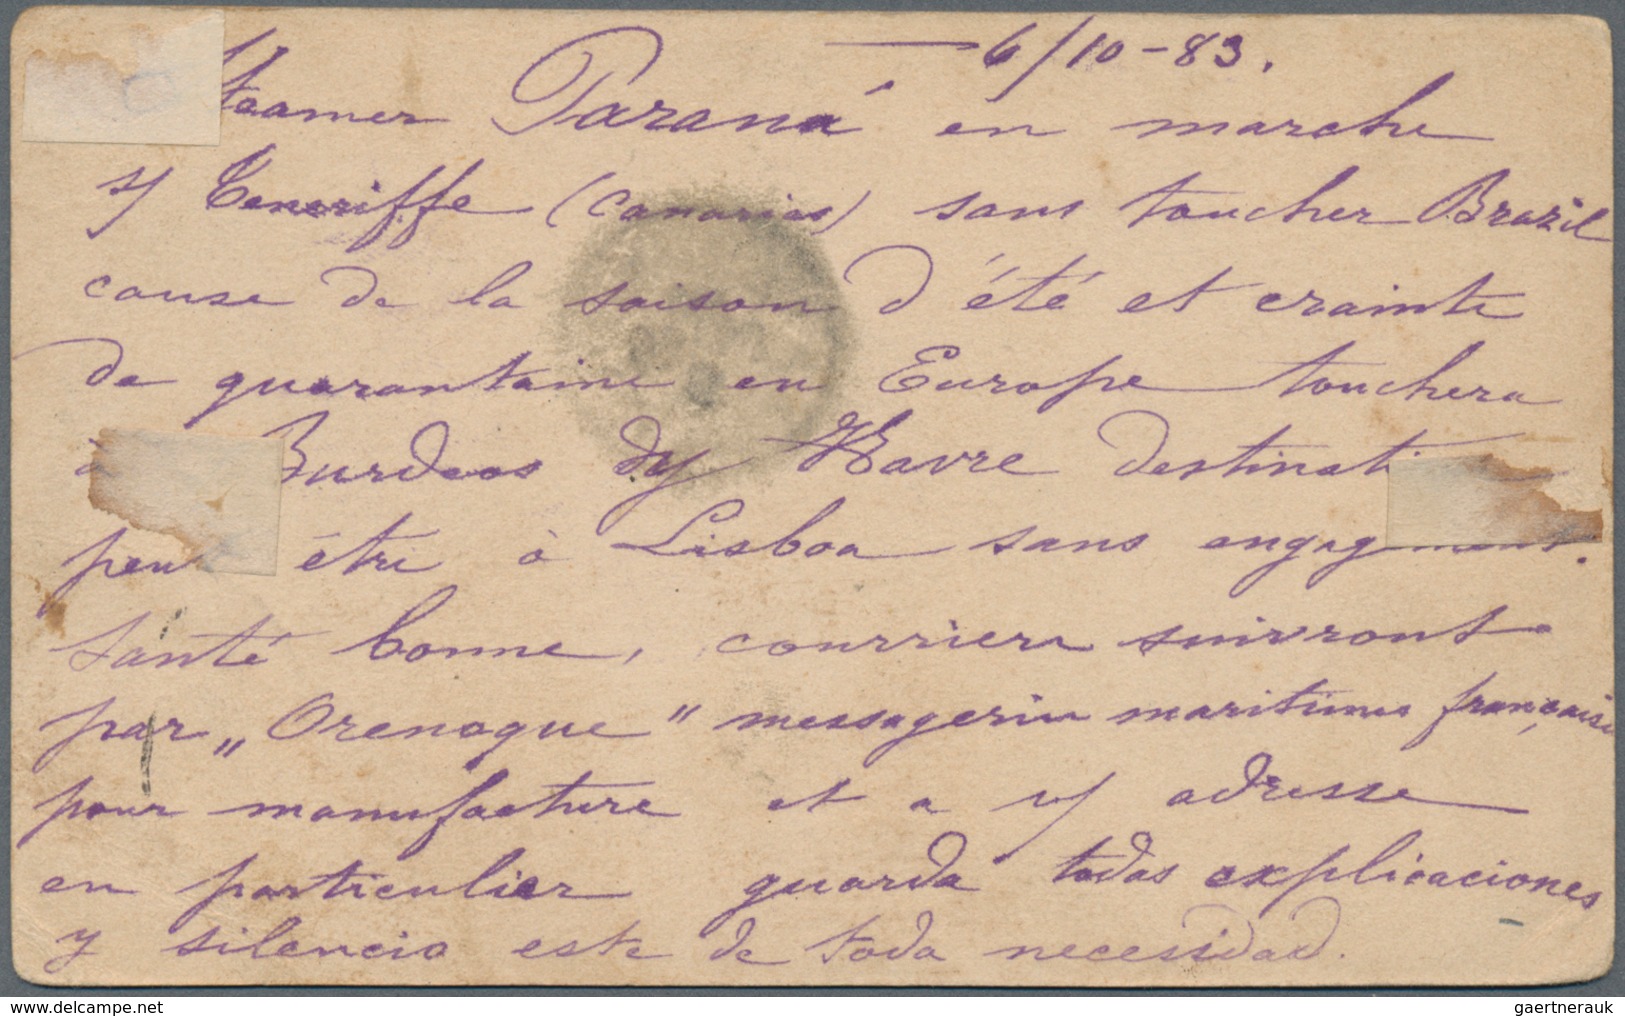 6/10-83.
Steamer Paraná en marche
s/ Teneriffe (Canarias) sans toucher Brazil
cause de la saison d'été et crainte
de quarantaine en Europe touchera
à Burdeos y Havre destinati
peut être à Lisboa sans engagement.
Santé bonne, courriers suivront
par „Orenoque" messageries maritimes françaises
pour manufacture et a s/ adresse
en particulier guarda todas explicaciones
y silencio este de toda necessidad.
gaertnerauk